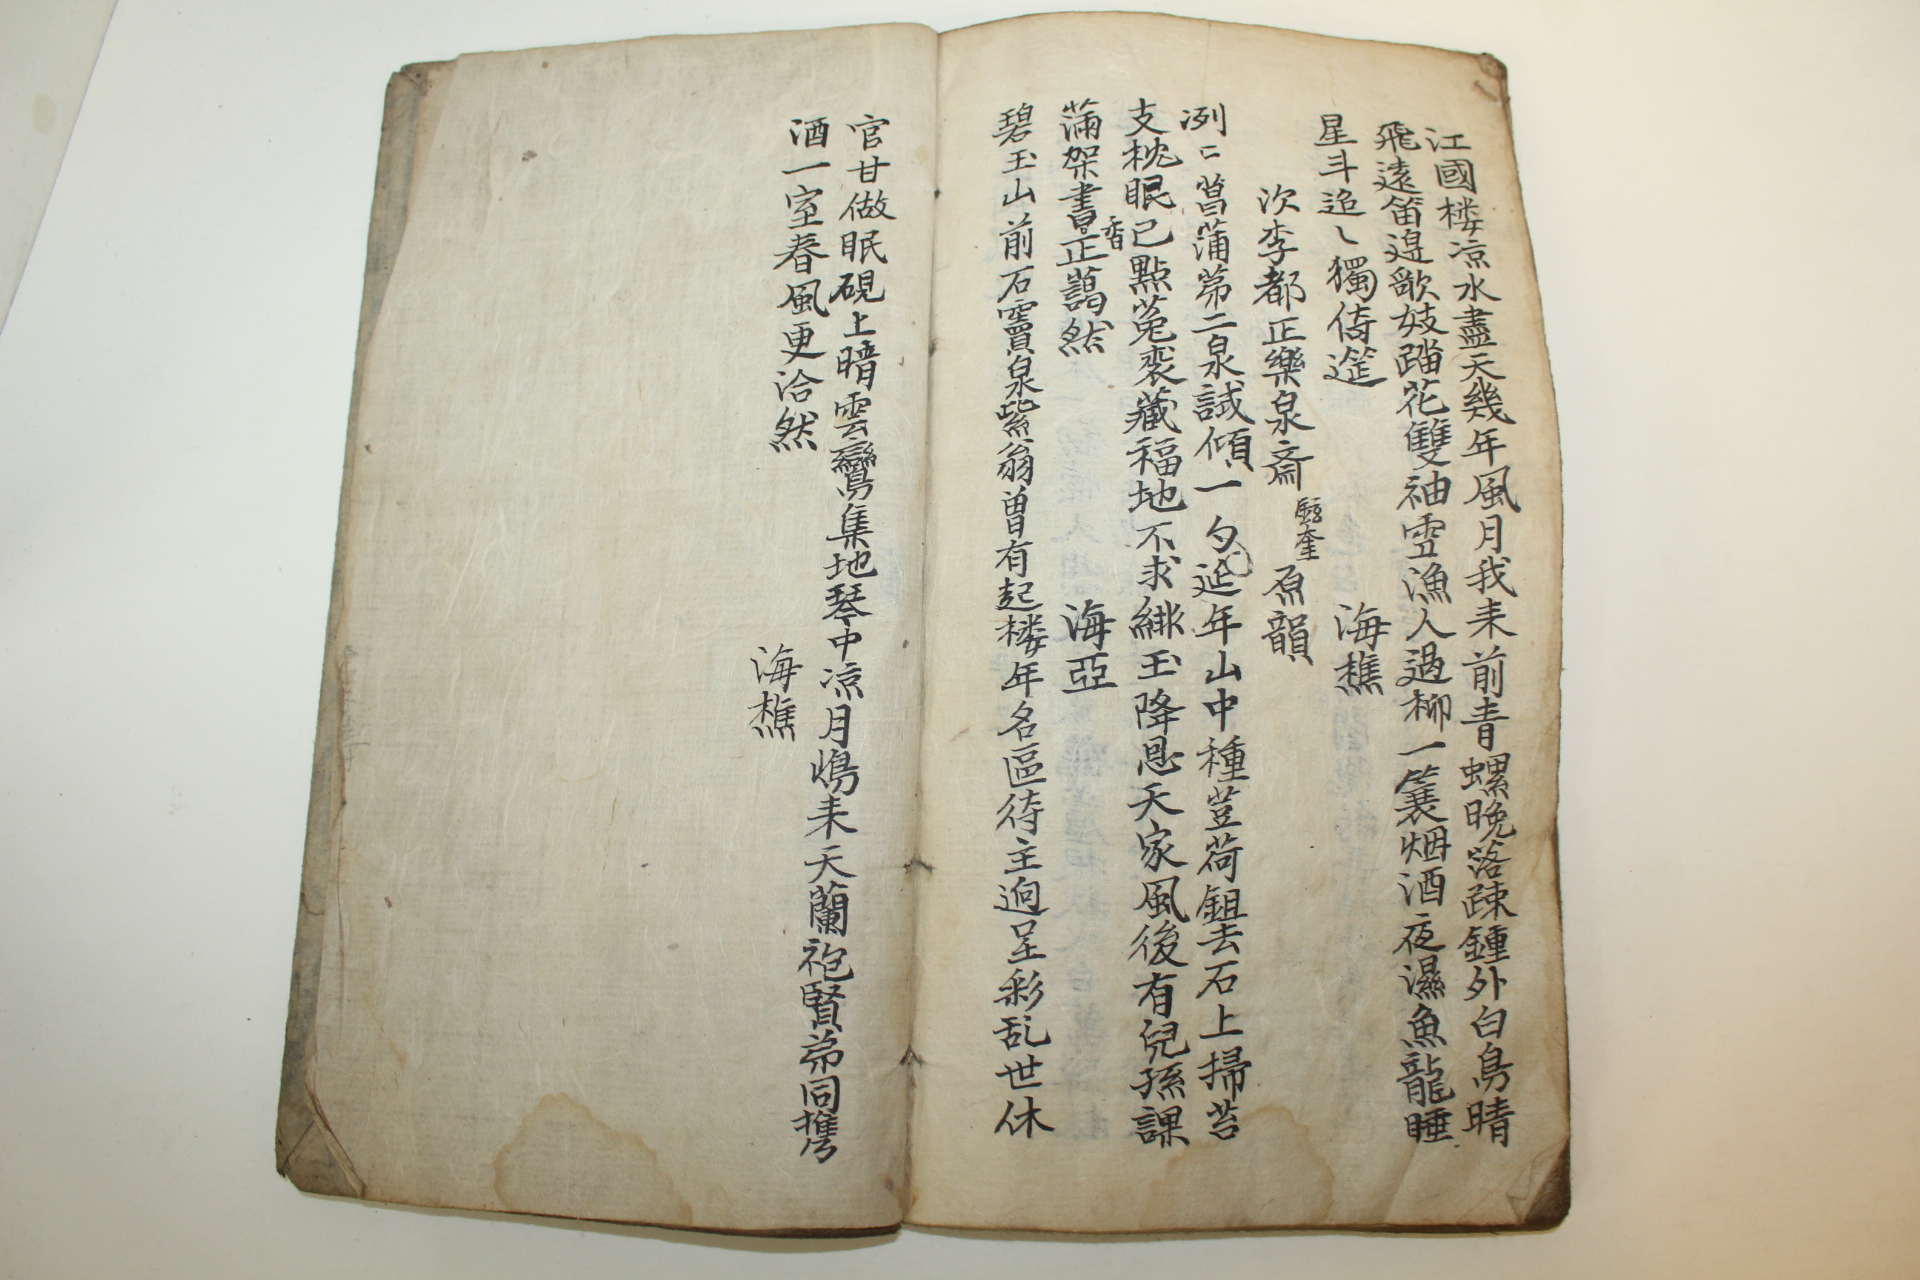 江國楼凉水盡天幾年風月我来前青螺晩落疎鍾外白鳥晴
飛遠笛邉歌妓踏花雙袖雪漁人過柳一簑烟酒夜濕魚龍睡
星斗迢〻獨倚筵
海樵
次李都正樂泉斎
奎
原韻
冽〻菖蒲苐二泉試傾一勺延年山中種荳荷鉏去石上掃苔
支枕眠已點菟裘藏福地不求緋玉降恩天家風後有兒孫課
滿架書香正藹然
海亞
碧玉山前石竇泉紫翁曽有起楼年名區待主逈呈彩乱世休
官甘做眠硯上暗雲鸞集地琴中凉月鴈来天蘭袍賢苐同携
酒一室春風更洽然
海樵